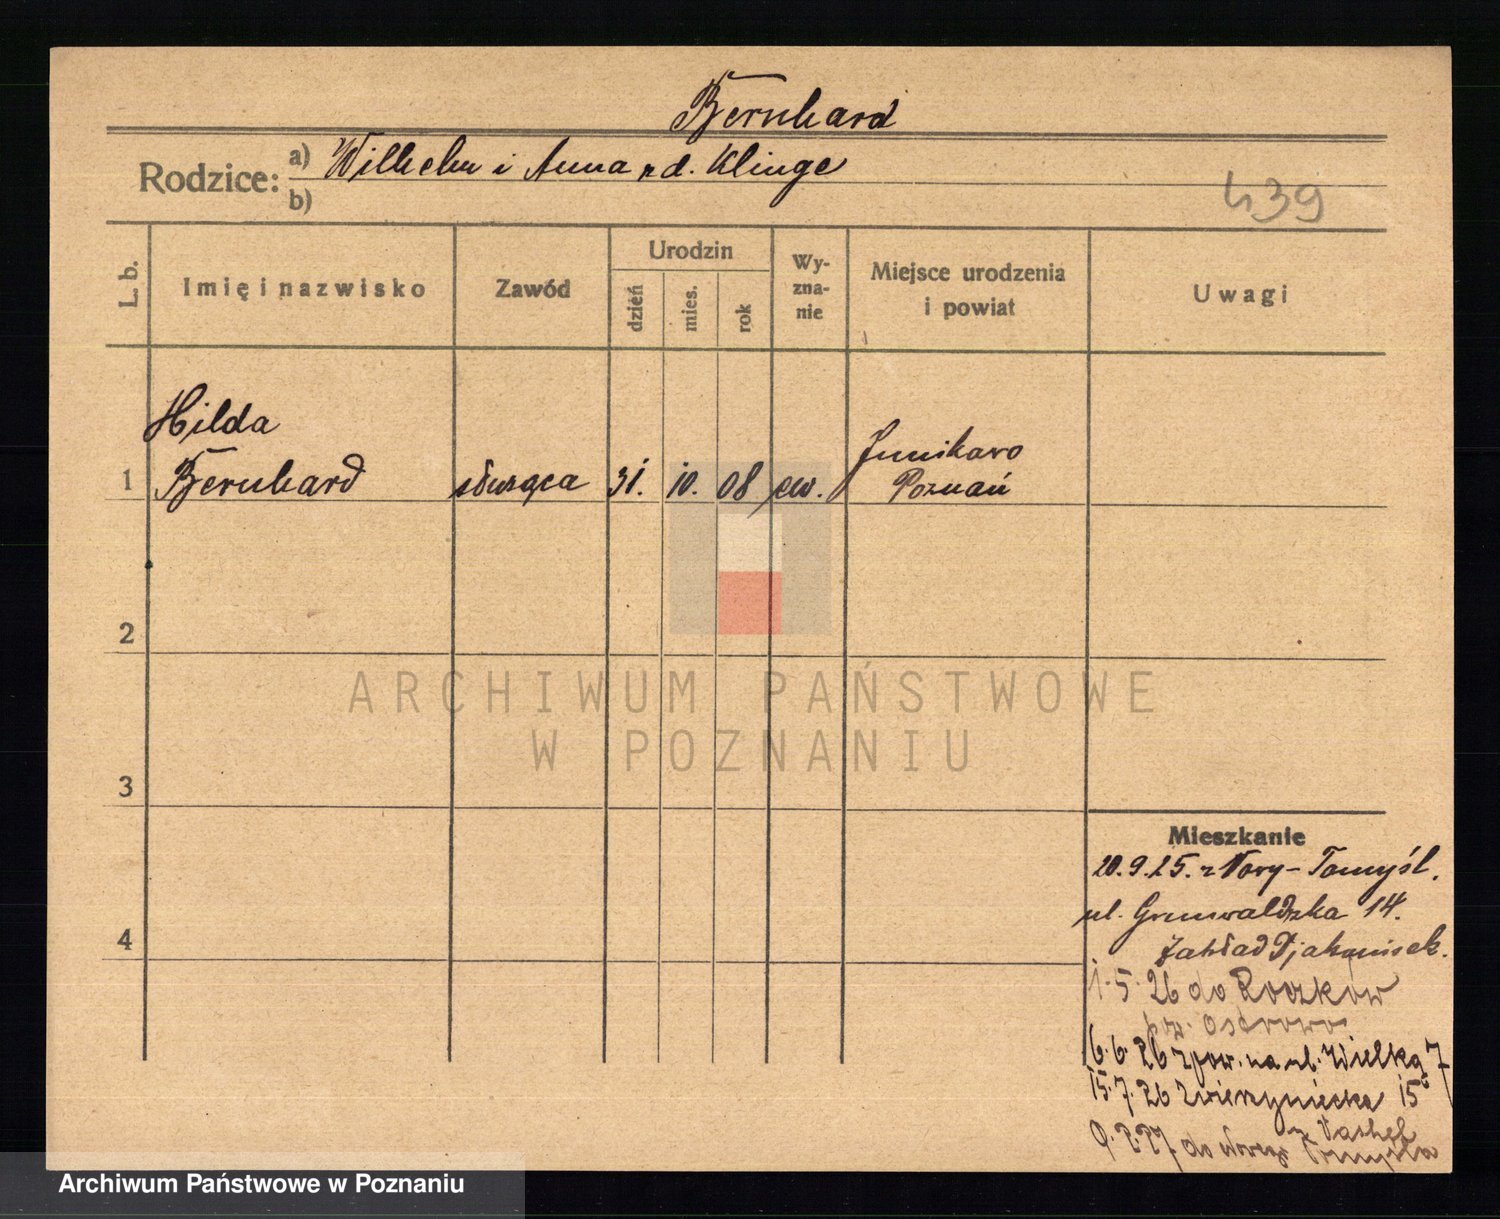 Bernhard
Rodzice:
a) Wilhelm i Anna r d. Klinge
b)
439
L. b.
Imię i nazwisko
Zawód
Urodzin
dzień
mies.
rok
Wy-
zna-
nie
Miejsce urodzenia
i powiat
Uwagi
1
Hilda
Bernhard
służąca
31.
10.
08
ew.
Junikowo
Poznań
2
3
4
ARCHIWUM PAŃSTWOWE
W POZNANIU
Mieszkanie
20.9.25. z Nowy-Tomyśl.
ul. Grunwaldzka 14.
Zakład Djakonisek.
1.5.26 do Roczków
pow. Ostrowo
6.6.26 zpow. na ul. Wielką 7
15.7.26 Zwierzyniecka 15
z
do Nowego Tomyśla
Archiwum Państwowe w Poznaniu